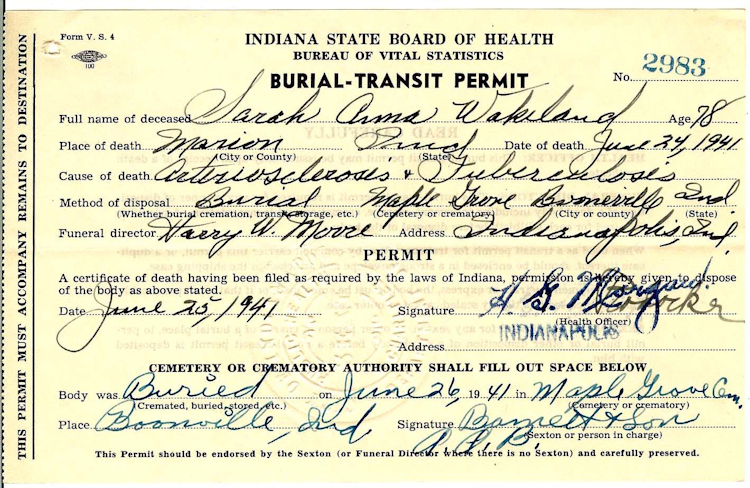 Form V. S. 4
100
INDIANA STATE BOARD OF HEALTH
BUREAU OF VITAL STATISTICS
BURIAL-TRANSIT PERMIT
No. 2983
Full name of deceased Sarah Anna Wakeland Age 78
Place of death Marion Ind Date of death June 24, 1941
(City or County) (State)
Cause of death Arteriosclerosis & Tuberculosis
Method of disposal Burial Maple Grove Booneville Ind
(Whether burial cremation, transit, storage, etc.) (Cemetery or crematory) (City or county) (State)
Funeral director Harry W. Moore Address Indianapolis, Ind.
PERMIT
A certificate of death having been filed as required by the laws of Indiana, permission is hereby given to dispose
of the body as above stated.
Date June 25 1941 Signature H. G.
(Health Officer)
INDIANAPOLIS
Address
CEMETERY OR CREMATORY AUTHORITY SHALL FILL OUT SPACE BELOW
Body was Buried on June 26, 1941 in Maple Grove Cem.
(Cremated, buried, stored, etc.) (Cemetery or crematory)
Place Boonville, Ind. Signature Barnett & Son
(Sexton or person in charge)
This Permit should be endorsed by the Sexton (or Funeral Director where there is no Sexton) and carefully preserved.
THIS PERMIT MUST ACCOMPANY REMAINS TO DESTINATION